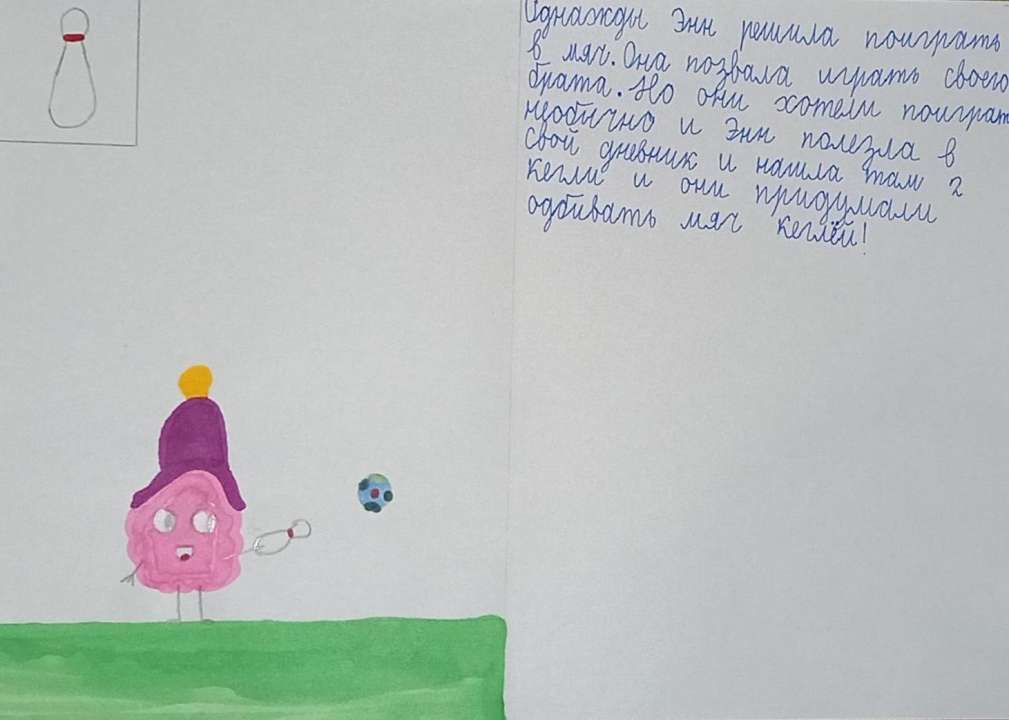 Однажды Энн решила поиграть
в мяч. Она позвала играть своего
брата. Но они хотели поиграт
необычно и Энн полезла в
свой дневник и нашла там 2
кегли и они придумали
одбивать мяч кеглей!